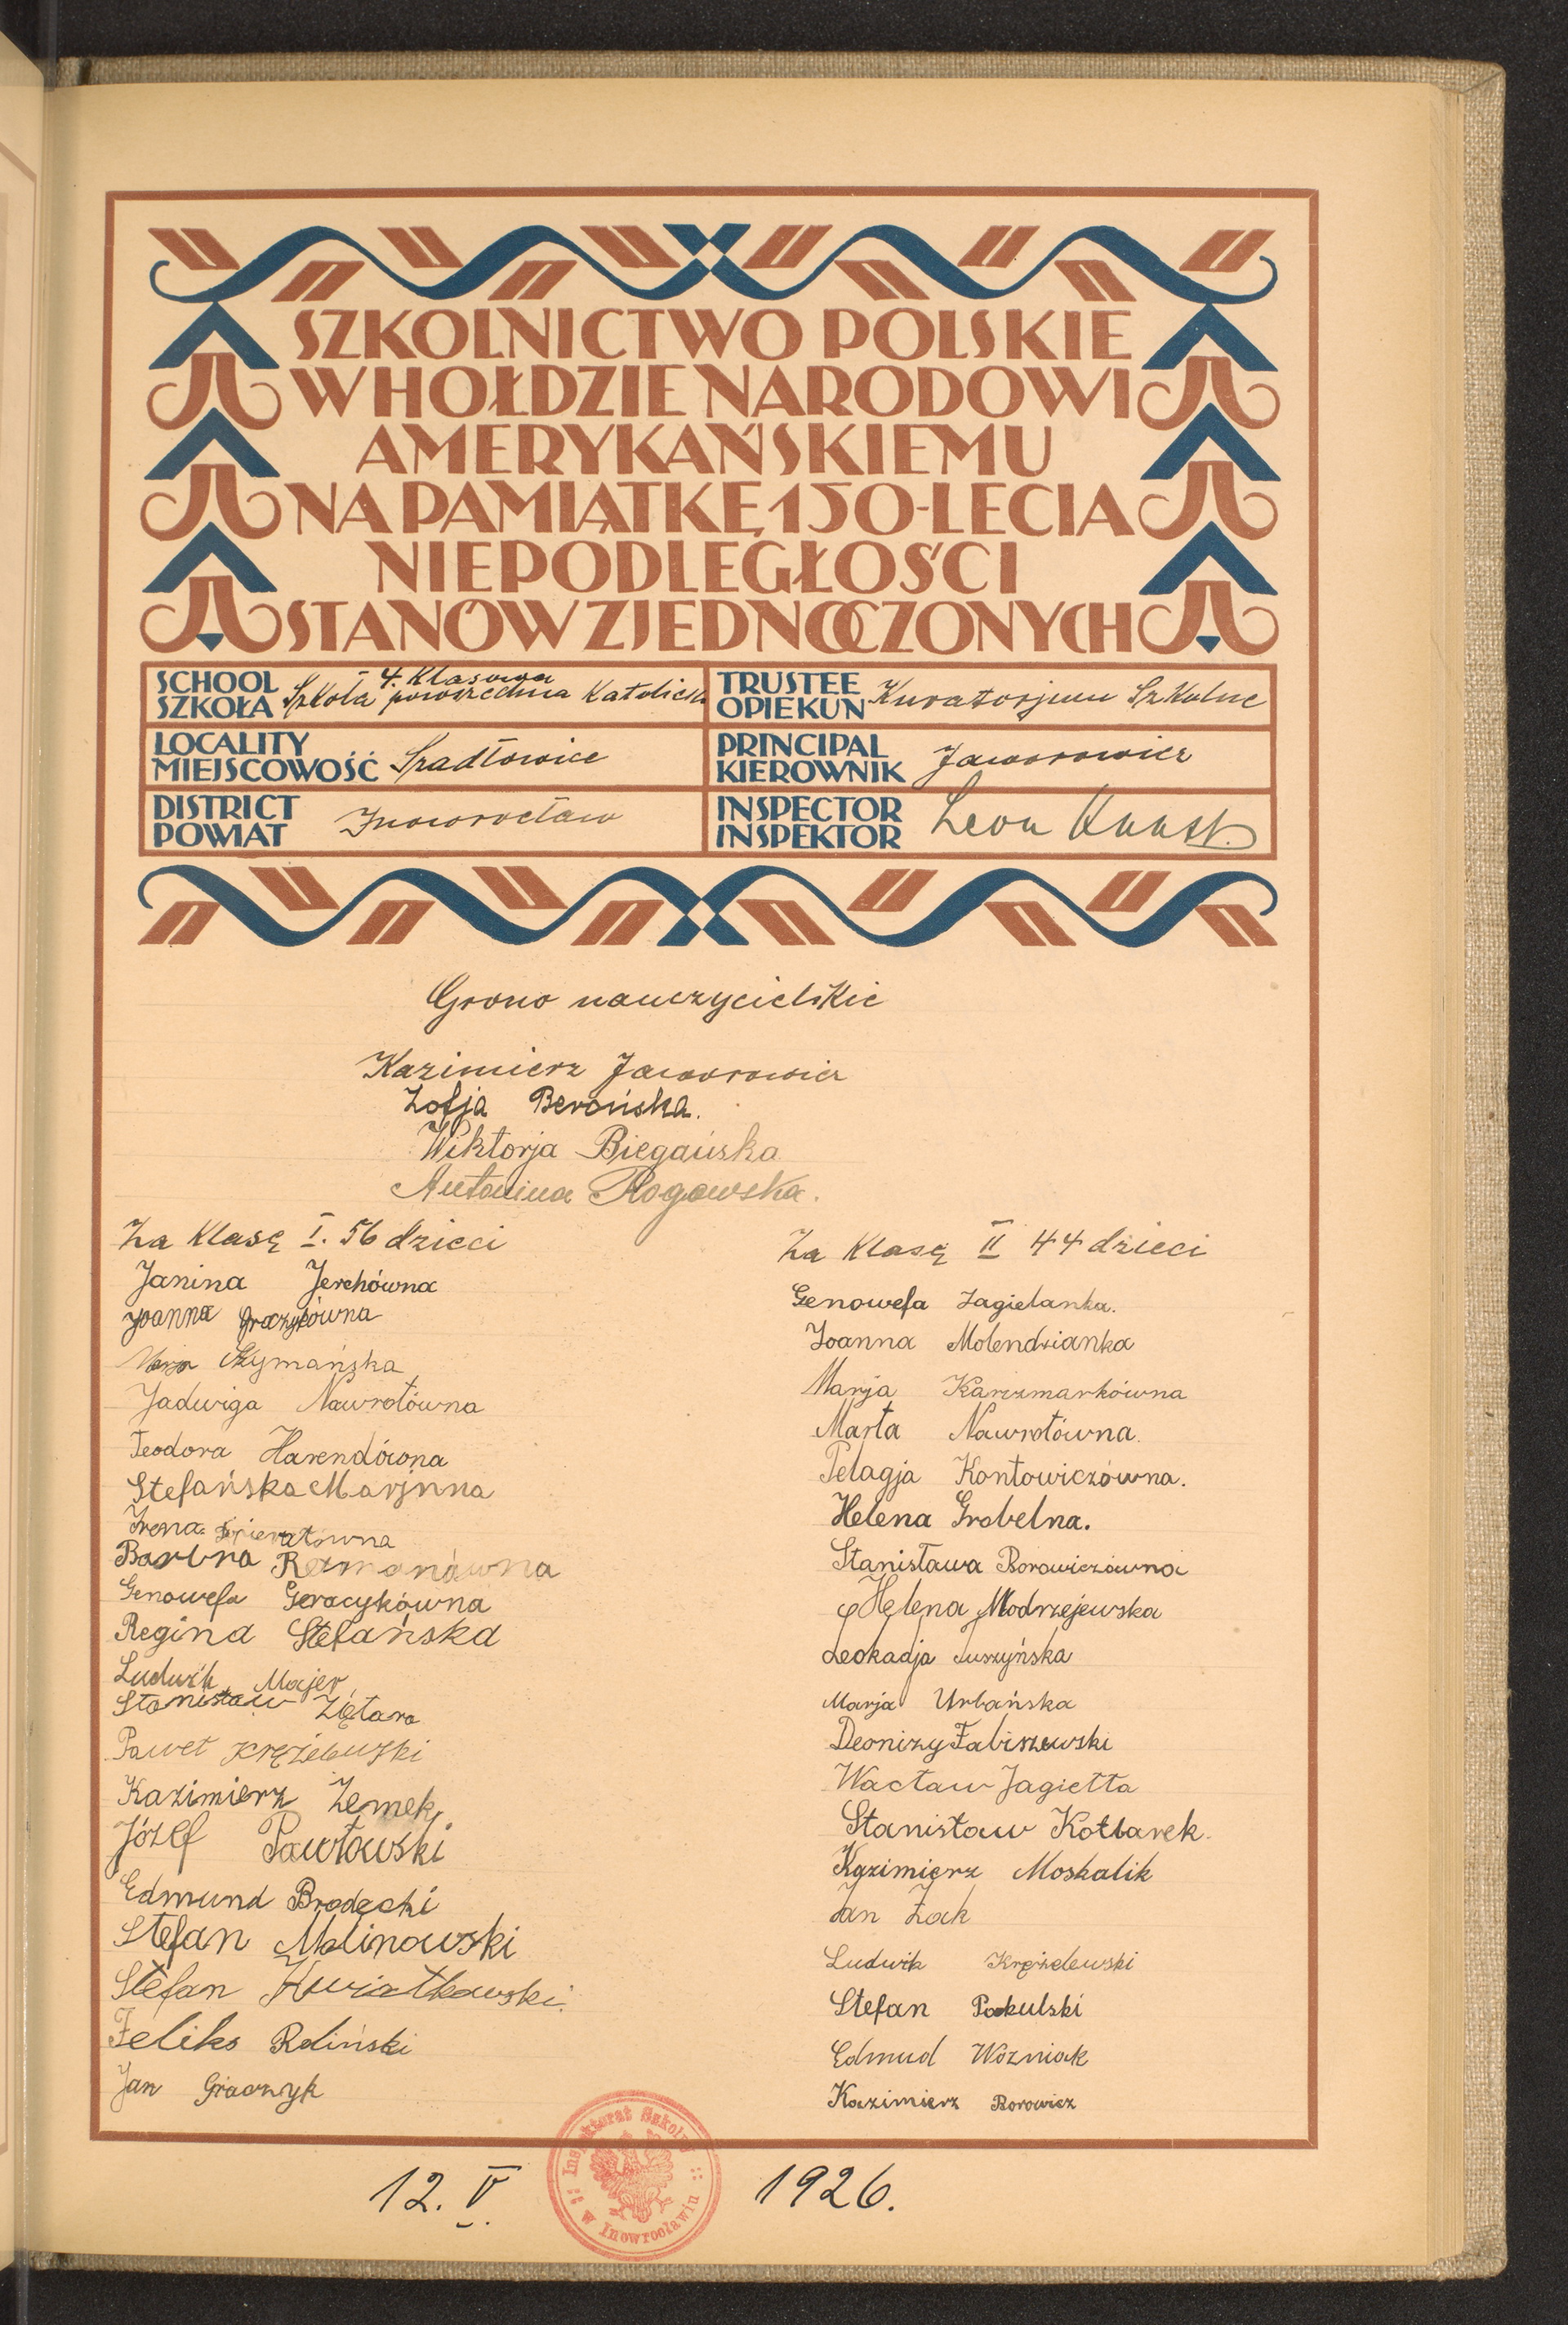 SZKOLNICTWO POLSKIE
W HOŁDZIE NARODOWI
AMERYKAŃSKIEMU
NA PAMIĄTKĘ 150-LECIA
NIEPODLEGŁOŚCI
STANÓW ZJEDNOCZONYCH
SCHOOL
SZKOŁA
4. Klasowa
Szkoła powszechna Katolicka
TRUSTEE
OPIEKUN
Kuratorjum Szkolne
LOCALITY
MIEJSCOWOŚĆ
Szadłowice
PRINCIPAL
KIEROWNIK
Jaworowicz
DISTRICT
POWIAT
Inowrocław
INSPECTOR
INSPEKTOR
Leon Kunst.
Grono nauczycielskie
Kazimierz Jaworowicz
Zofja Berońska.
Wiktorja Biegańska
Antonina Rogowska.
Za Klasę I. 56 dzieci
Janina Jerchówna
Joanna Graczykówna
Marja Szymańska
Jadwiga Nawrotówna
Teodora Harendówna
Stefańska Marjnna
Irena
Barbra Ratmanówna
Genowefa Geracykówna
Regina Stefańska
Ludwik Majer
Stanisław Ziętara
Paweł Krężelewski
Kazimierz Zemek
Józef Pawłowski
Edmund Brodecki
Stefan Malinowski
Stefan Kwiatkowski.
Feliks Roliński
Jan Graczyk
Za Klasę II 44 dzieci
Genowefa Jagielanka.
Joanna Molendzianka
Marja Karczmarkówna
Marta Nawrotówna.
Pelagja Kontowiczówna.
Helena Grobelna.
Stanisława Borowiczówna
Helena Modrzejewska
Leokadja Tuszyńska
Marja Urbańska
Deonizy Fabiszewski
Wacław Jagiełła
Stanisław Kotlarek.
Kazimierz Moskalik
Jan Żak
Ludwik Krężelewski
Stefan Pakulski
Edmud Woźniak
Kazimierz Borowicz
Inspektorat Szkolny
w Inowrocławiu
12. V. 1926.